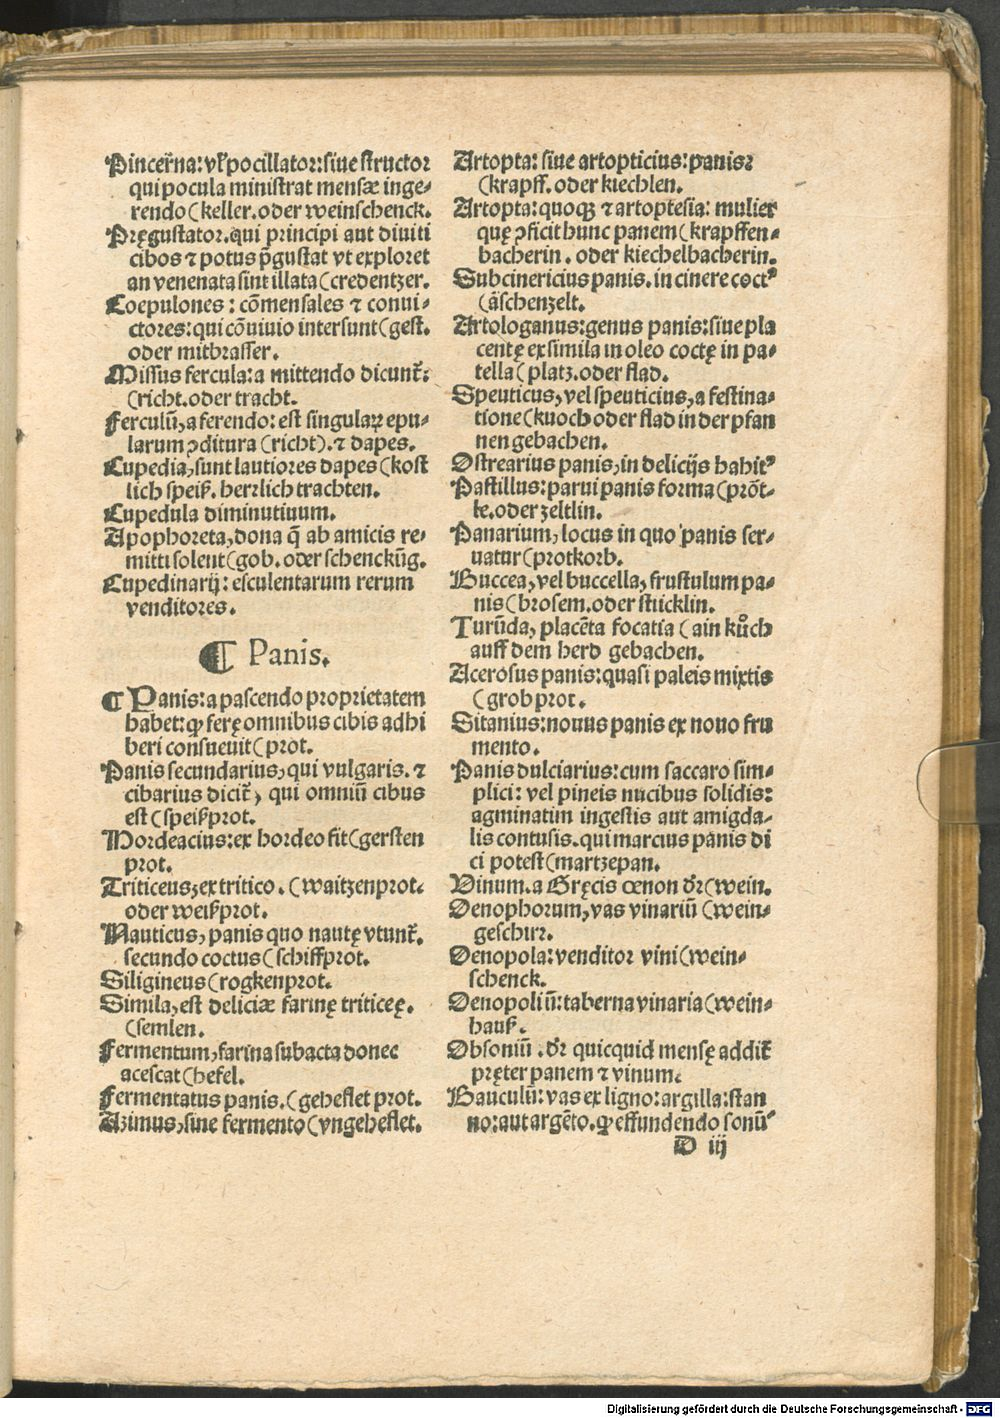 Pincer̃na: vl̕ pocillator: siue structor
qui pocula ministrat mensæ inge⸗
rendo (keller. oder weinschenck.
Pręgustator. qui principi aut diuiti
cibos ⁊ potus p̄gustat vt exploret
an venenata sint illata (credentzer.
Coepulones: cōmensales ⁊ conui⸗
ctores: qui cōuiuio intersunt (gest.
oder mitbrasser.
Missus fercula: a mittendo dicunt̃:
(richt. oder tracht.
Ferculū, a ferendo: est singulaꝝ epu⸗
larum ꝯditura (richt). ⁊ dapes.
Cupedia, sunt lautiores dapes (kost
lich speiß. herrlich trachten.
Cupedula diminutiuum.
Apophoreta, dona q̄ ab amicis re⸗
mitti solent (gob. oder schenckūg.
Cupedinarij: esculentarum rerum
venditores.
¶ Panis.
¶ Panis: a pascendo proprietatem
habet: ꝙ ferę omnibus cibis adhi
beri consueuit (prot.
Panis secundarius, qui vulgaris. ⁊
cibarius dicit̃, qui omniū cibus
est (speißprot.
Hordeacius: ex hordeo fit (gersten
prot.
Triticeus, ex tritico. (waitzenprot.
oder weißprot.
Nauticus, panis quo nautę vtunt̃.
secundo coctus (schiffprot.
Siligineus (rogkenprot.
Simila, est deliciæ farinę triticeę.
(semlen.
Fermentum, farina subacta donec
acescat (hefel.
Fermentatus panis. (geheflet prot.
Azimus, sine fermento (vngeheflet.
Artopta: siue artopticius: panis:
(krapff. oder kiechlen.
Artopta: quoqꝫ ⁊ artoptesia: mulier
quę ꝯficit hunc panem (krapffen⸗
bacherin. oder kiechelbacherin.
Subcinericius panis. in cinere coctꝰ
(äschenzelt.
Artologanus: genus panis: siue pla
centę ex simila in oleo coctę in pa⸗
tella (platz. oder flad.
Speuticus, vel speuticius, a festina⸗
tione (kuoch oder flad in der pfan
nen gebachen.
Ostrearius panis, in delicijs habitꝰ
Pastillus: parui panis forma (prōt⸗
ke. oder zeltlin.
Panarium, locus in quo panis ser⸗
uatur (protkorb.
Buccea, vel buccella, frustulum pa⸗
nis (brosem. oder stücklin.
Turūda, placēta focatia (ain kůch
auff dem herd gebachen.
Acerosus panis: quasi paleis mixtis
(grob prot.
Sitanius: nouus panis ex nouo fru
mento.
Panis dulciarius: cum saccaro sim⸗
plici: vel pineis nucibus solidis:
agminatim ingestis aut amigda⸗
lis contusis. qui marcius panis di
ci potest (martzepan.
Vinum. a Gręcis œnon dr̃ (wein.
Oenophorum, vas vinariū (wein⸗
geschirr.
Oenopola: venditor vini (wein⸗
schenck.
Oenopoliū: taberna vinaria (wein⸗
hauß.
Obsoniū. dr̃ quicquid mensę addit̃
pręter panem ⁊ vinum.
Bauculū: vas ex ligno: argilla: stan
no: aut argēto. ꝙ effundendo sonūꝰ
D iij
Digitalisierung gefördert durch die Deutsche Forschungsgemeinschaft - DFG